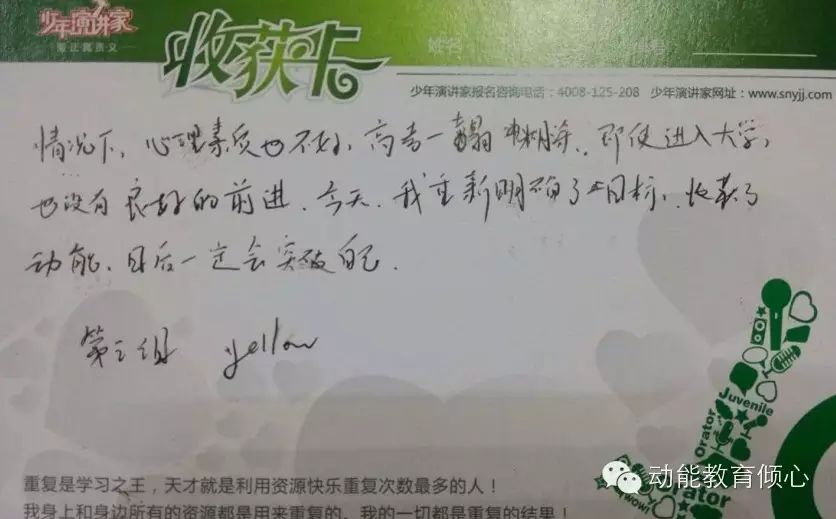 少年演讲家
收获卡
姓名
少年演讲家报名咨询电话：4008-125-208 少年演讲家网址：www.snyjj.com
情况下，心理素质也不好，高考一塌糊涂，即使进入大学，
也没有良好的前进，今天，我重新明确了目标，收获了
动能，日后一定会突破自己。
第三组 yellow
Juvenile
Orator
Orator
wow!
重复是学习之王，天才就是利用资源快乐重复次数最多的人！
我身上和身边所有的资源都是用来重复的。我的一切都是重复的结果！
动能教育倾心